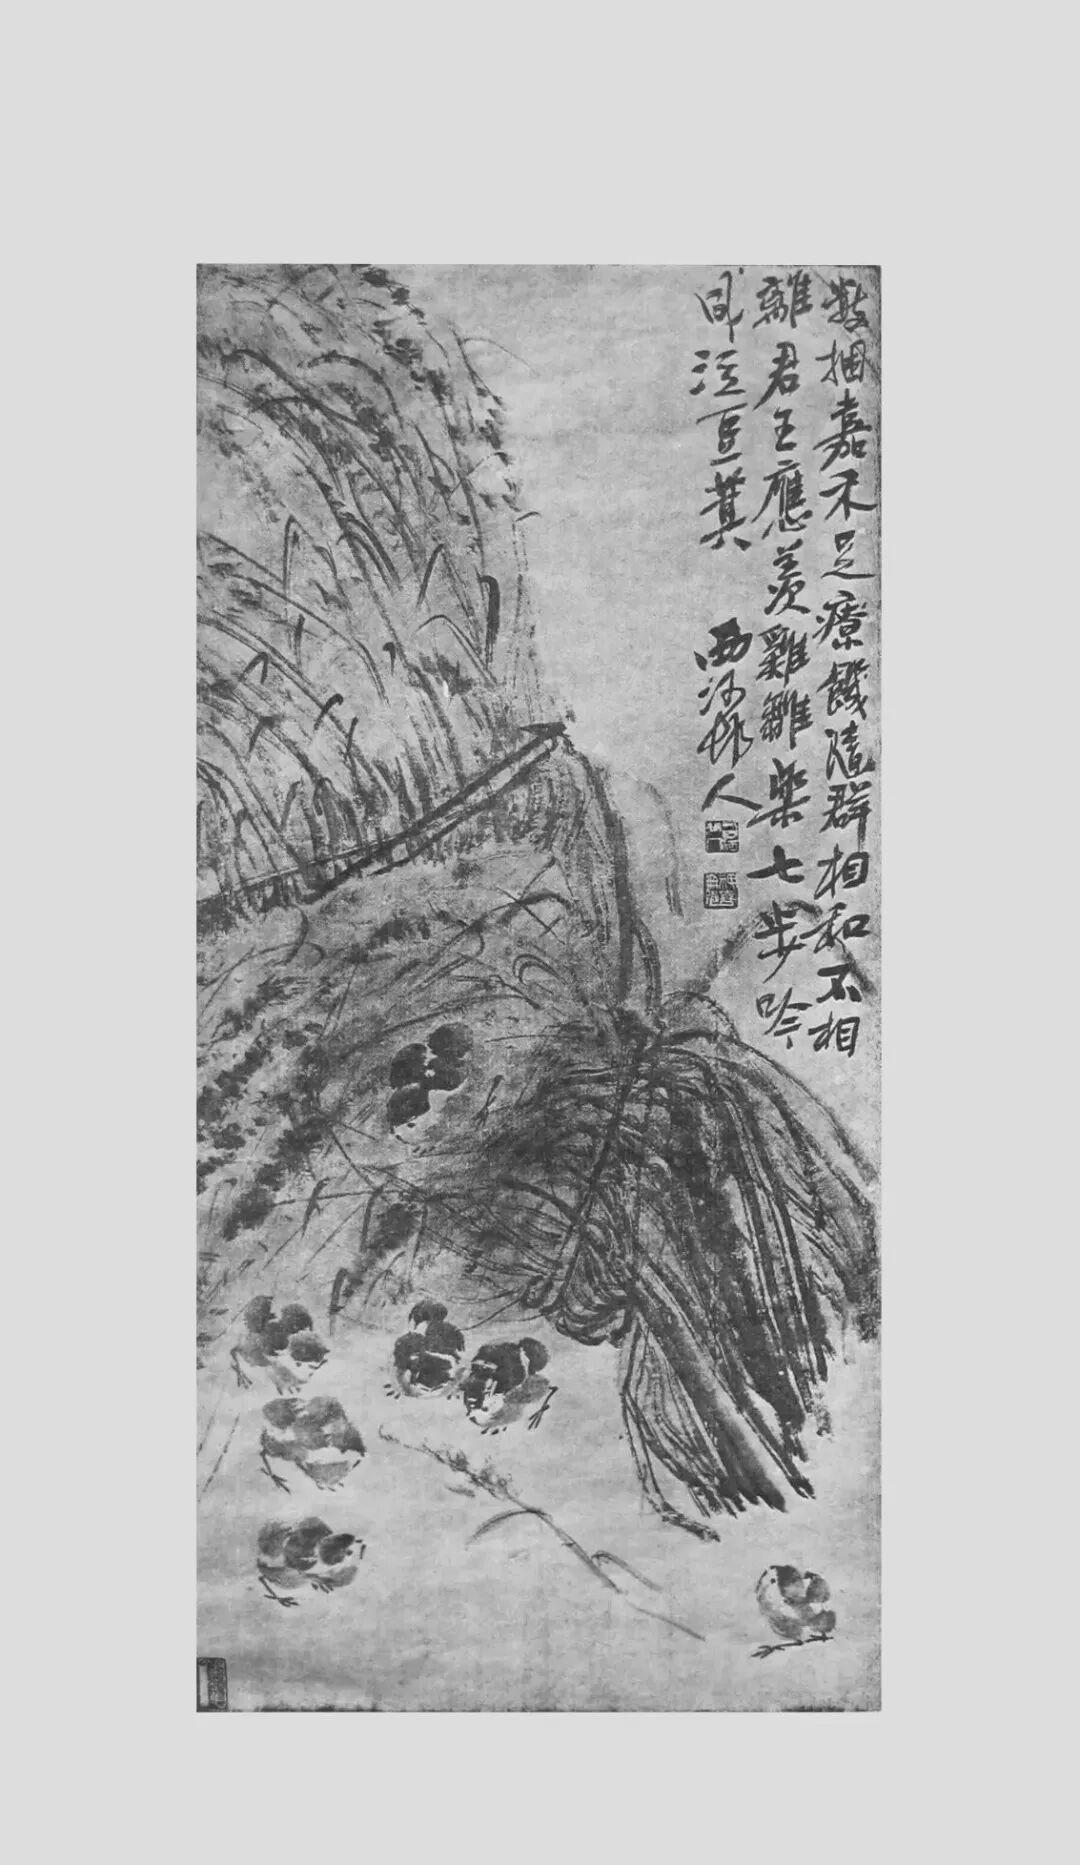 數捆嘉禾足療饑隨群相和不相
離君王應羨雞雛樂七步吟
成泣豆萁 西河人